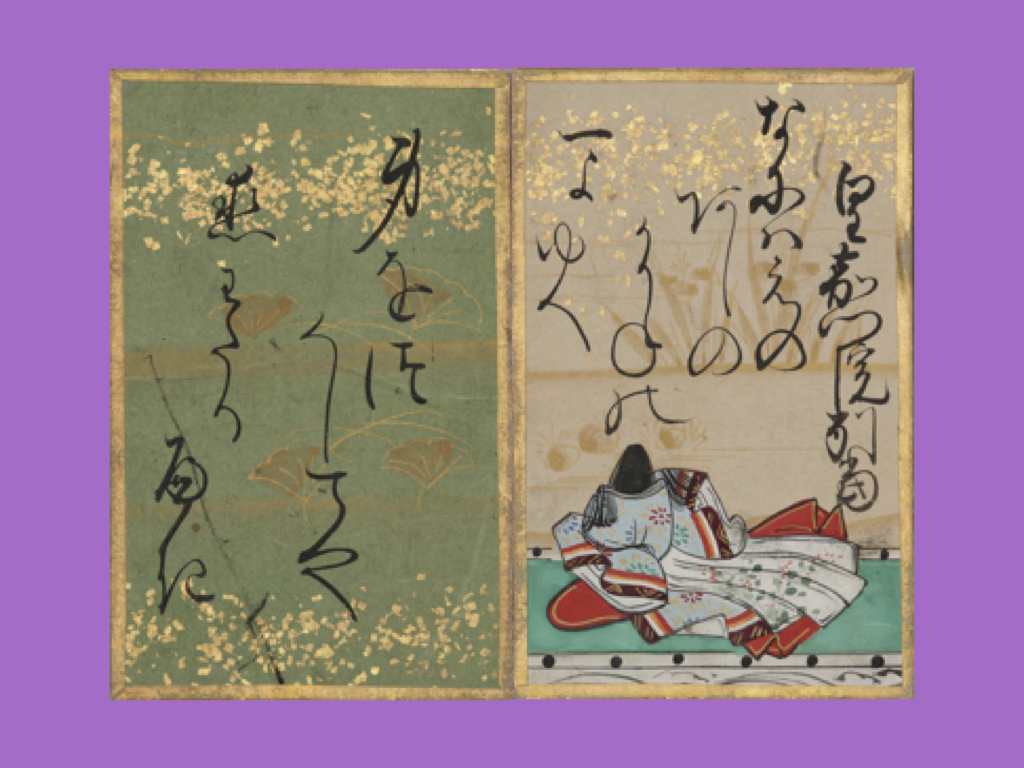 皇嘉門院別当
なにハえの
あしの
かりねの
一よゆへ
身をつ
くしてや
恋わたる
へき